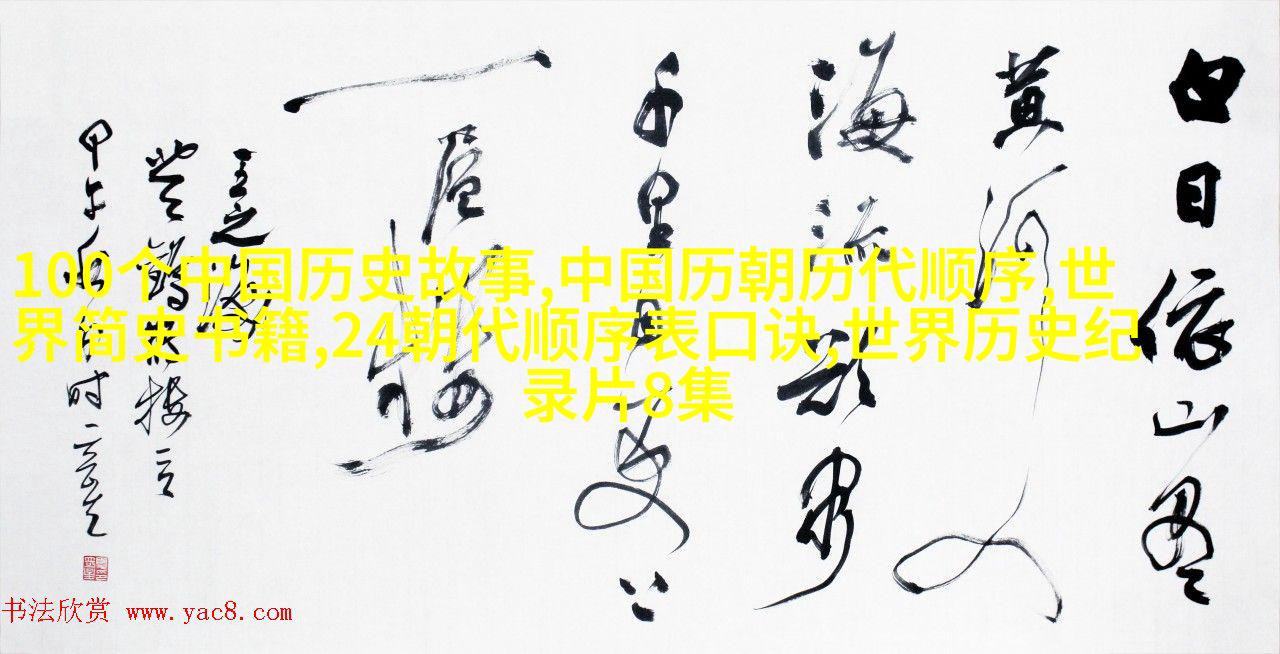 白日依山尽
黄河入
海流欲穷
千里目更上
一层楼
王之涣
登鹳雀楼
甲午 时
100个中国历史故事,中国历朝历代顺序,世
界简史书籍,24朝代顺序表口诀,世界历史纪
录片8集
书法欣赏 www.yac8.com